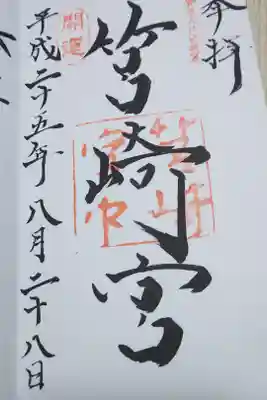 奉拝
筥崎宮
開運
平成二十五年八月二十八日